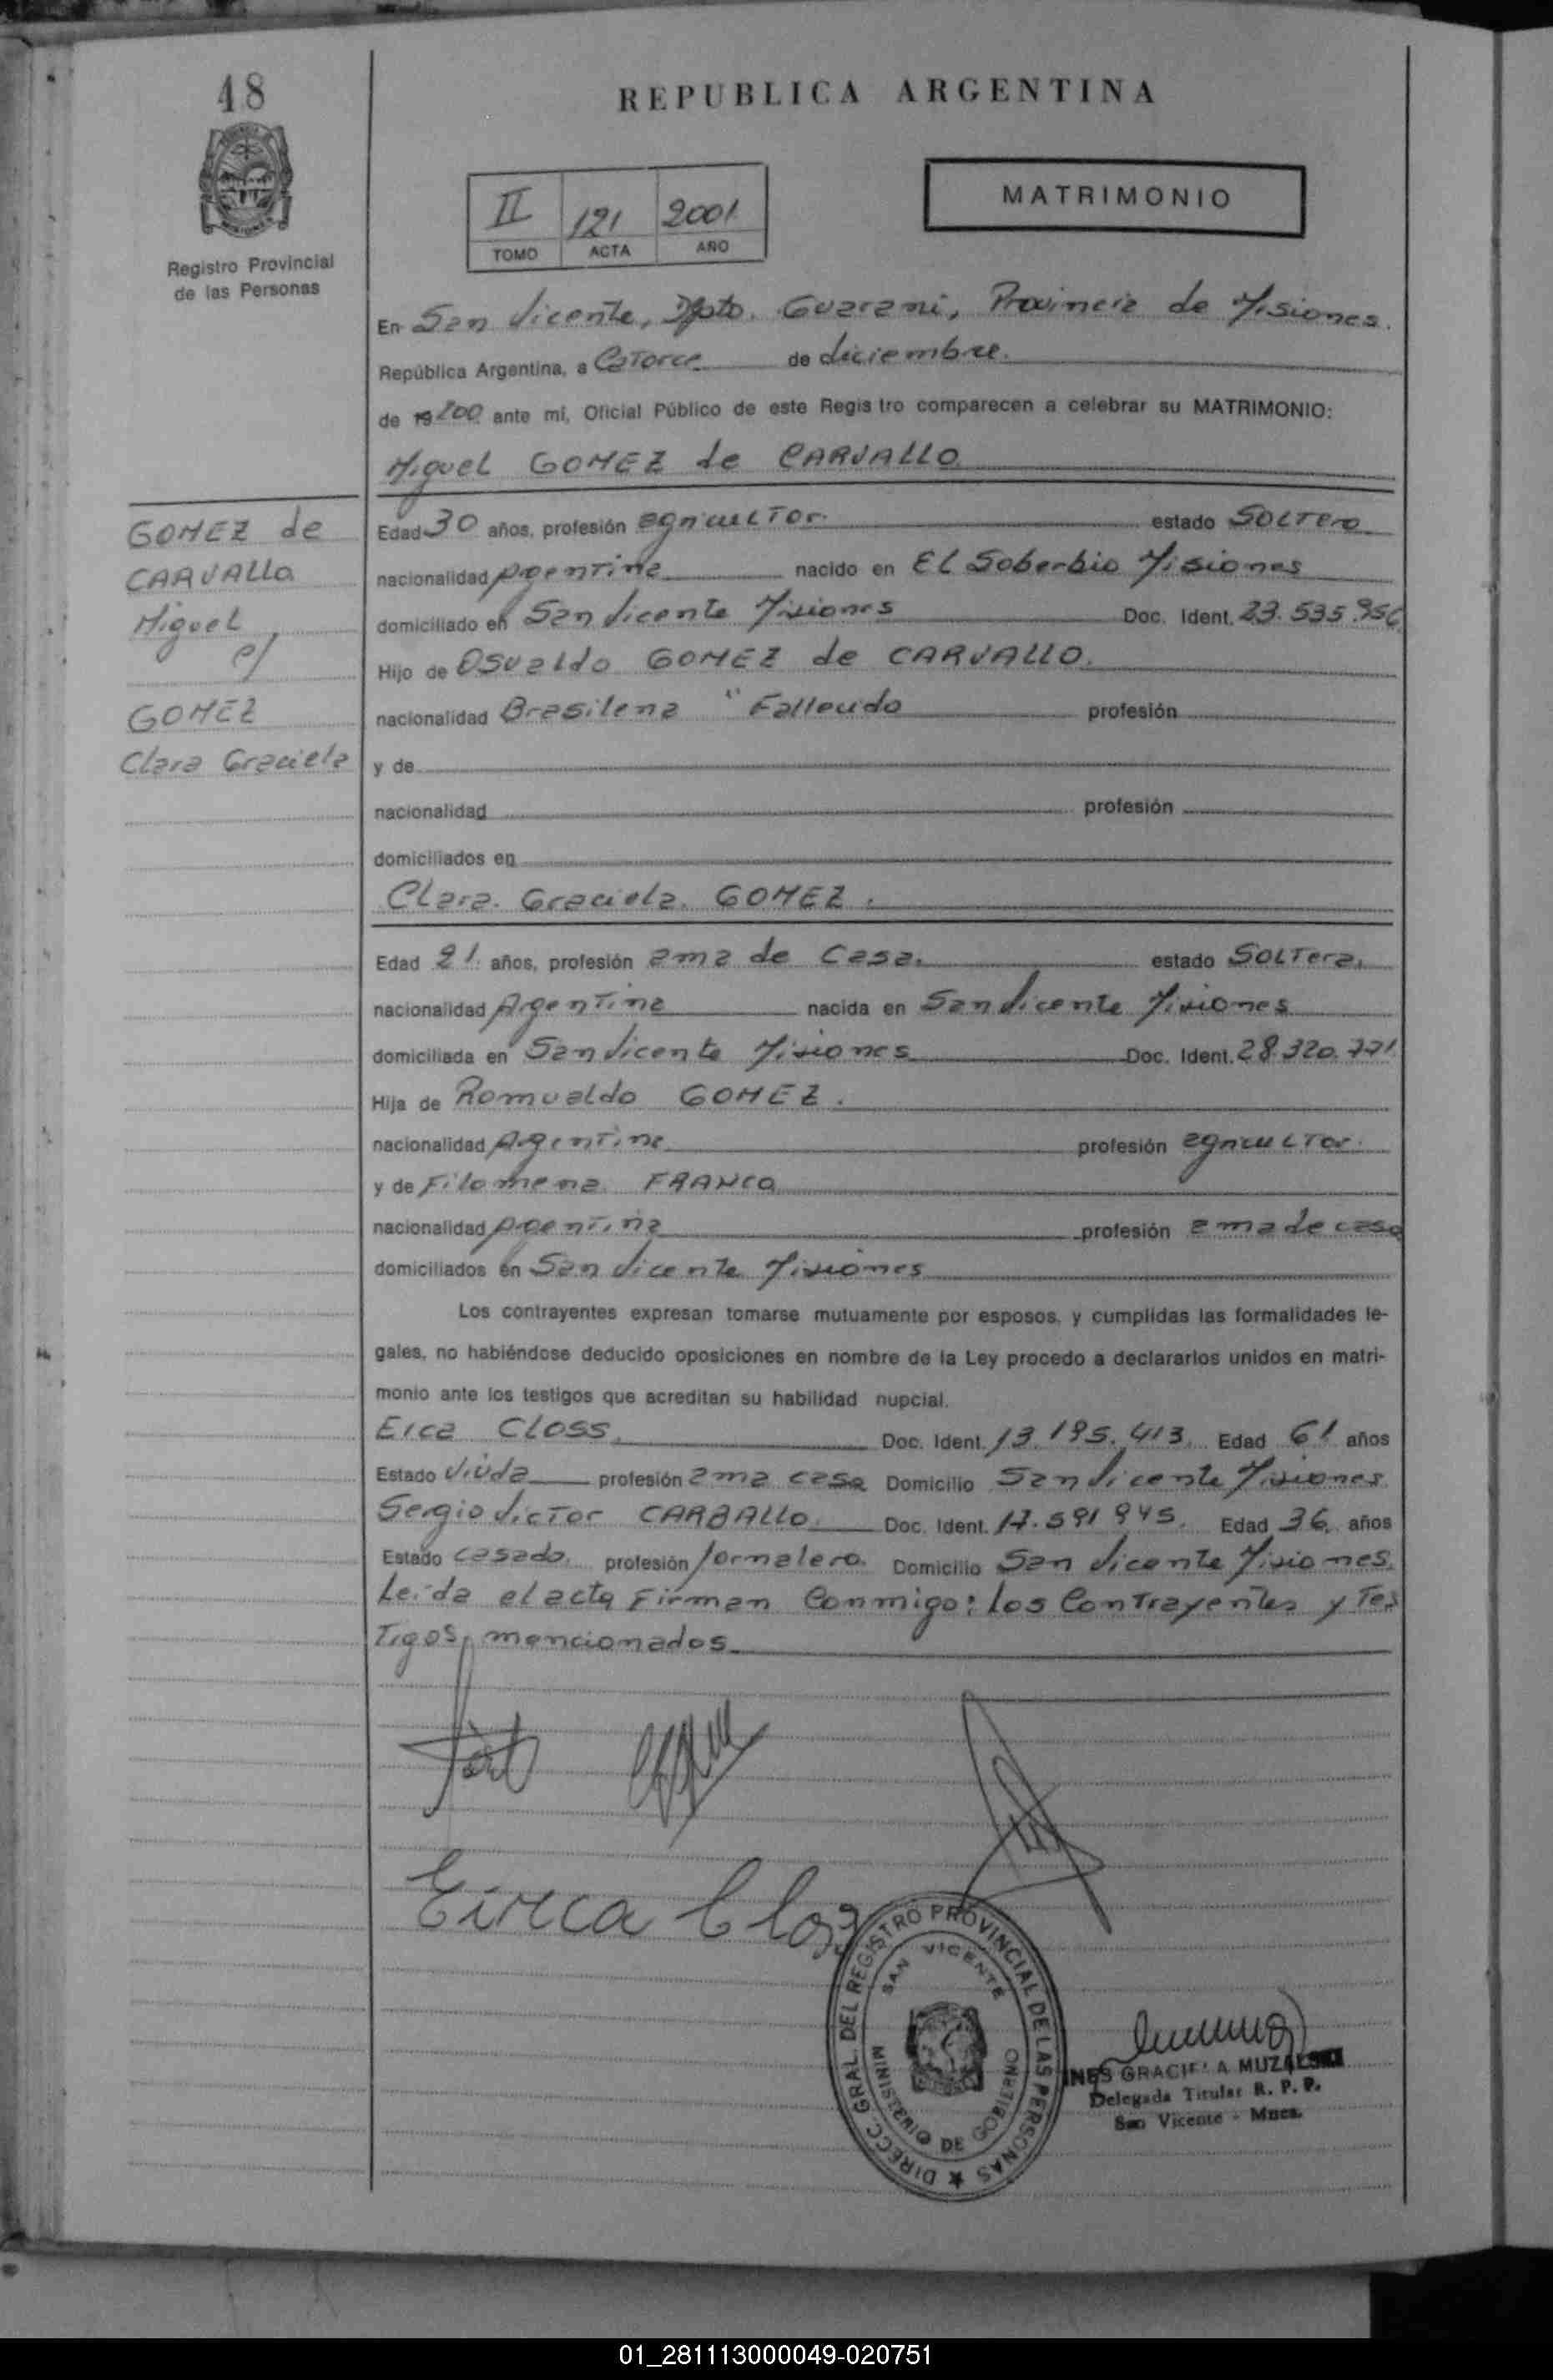 48
REPUBLICA ARGENTINA
MATRIMONIO
II 121 2001
TOMO ACTA AÑO
Registro Provincial
de las Personas
En San Vicente, Dpto. Guarani, Provincia de Misiones.
República Argentina, a Catorce de diciembre.
de 19 200 ante mi, Oficial Público de este Registro comparecen a celebrar su MATRIMONIO:
Miguel GOMEZ de CARVALLO
GOMEZ de
CARVALLO
Miguel
c/
GOMEZ
Clara Graciela
Edad 30 años, profesión agricultor. estado Soltero
nacionalidad Argentina nacido en El Soberbio Misiones
domiciliado en San Vicente Misiones Doc. Ident. 23.535.956
Hijo de Osvaldo GOMEZ de CARVALLO.
nacionalidad Brasilena "Fallecido profesión
y de
nacionalidad profesión
domiciliados en
Clara Graciela GOMEZ.
Edad 21 años, profesión ama de Casa. estado Soltera,
nacionalidad Argentina nacida en San Vicente Misiones
domiciliada en San Vicente Misiones Doc. Ident. 28.320.771
Hija de Romualdo GOMEZ.
nacionalidad Argentina profesión agricultor.
y de Filomena FRANCO
nacionalidad Argentina profesión ama de casa
domiciliados en San Vicente Misiones
Los contrayentes expresan tomarse mutuamente por esposos, y cumplidas las formalidades le-
gales, no habiéndose deducido oposiciones en nombre de la Ley procedo a declararlos unidos en matri-
monio ante los testigos que acreditan su habilidad nupcial.
Eica CLOSS. Doc. Ident. 13.195.413. Edad 61 años
Estado Viuda profesión ama casa Domicilio San Vicente Misiones
Sergio Victor CARBALLO Doc. Ident. 17.591 945. Edad 36 años
Estado casado. profesión Jornalero. Domicilio San Vicente Misiones.
Leida el acta Firman Conmigo: los Contrayentes y Tes
Tigos, mencionados
Eirica Closs
DIRECC. GRAL. DEL REGISTRO PROVINCIAL DE LAS PERSONAS
SAN VICENTE
MINISTERIO DE GOBIERNO
INES GRACIELA
Delegada Titular R. P. P.
San Vicente - Mnes.
01_281113000049-020751